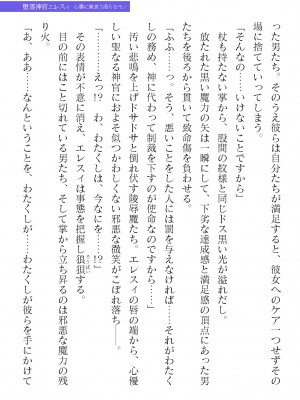 堕落神官エレスィ 心臓に巣食う淫らなモノ
った男たち。そのうえ彼らは自分たちが満足すると、彼女へのケア一つせずその
場に捨てていってしまう。
「そんなの……いけないことですから」
　杖も持たない掌から、股間の紋様と同じドス黒い光が溢れだし。
　放たれた黒い魔力の矢は一瞬にして、下劣な達成感と満足感の頂点にあった男
たちを後ろから貫いて致命傷を負わせる。
「ふふ……っ。そう、悪いことをした人には罰を与えなければ……それがわたく
しの務め、神に代わって制裁を下すのが使命なのですから……」
　汚い悲鳴を上げドサドサと倒れ伏す陵辱魔たち。エレスィの唇の端から、心優
しい聖なる神官におよそ似つかわしくない邪悪な微笑がこぼれ落ち――。
「……えっ!?　わ、わたくしは、今なにを……!?」
　その表情が不意に消え、エレスィは事態を把握し狼狽する。
　目の前にはこと切れている男たち、そして掌から立ち昇るのは邪悪な魔力の残
り火。
「あ、ああ……なんということを、わたくしが……わたくしが彼らを手にかけて